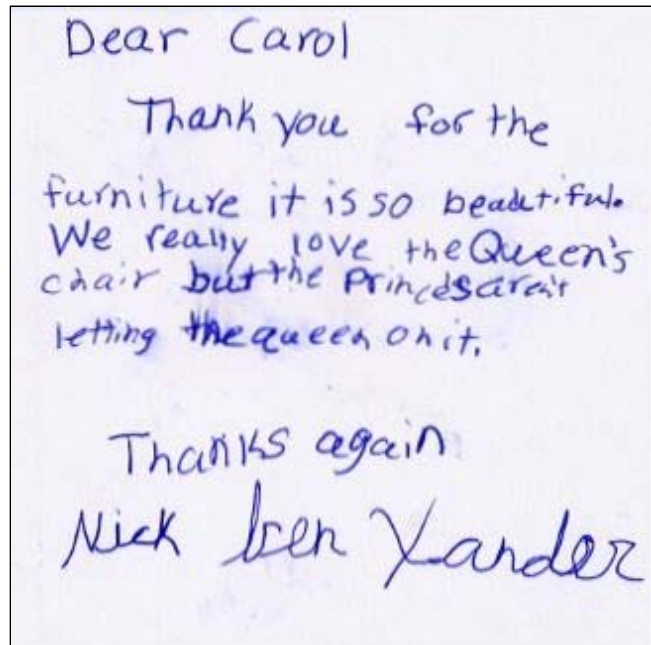 Dear Carol
Thank you for the
furniture it is so beautiful.
We really love the Queen's
chair but the Princes aren't
letting the queen on it.
Thanks again
Nick Ben Xander